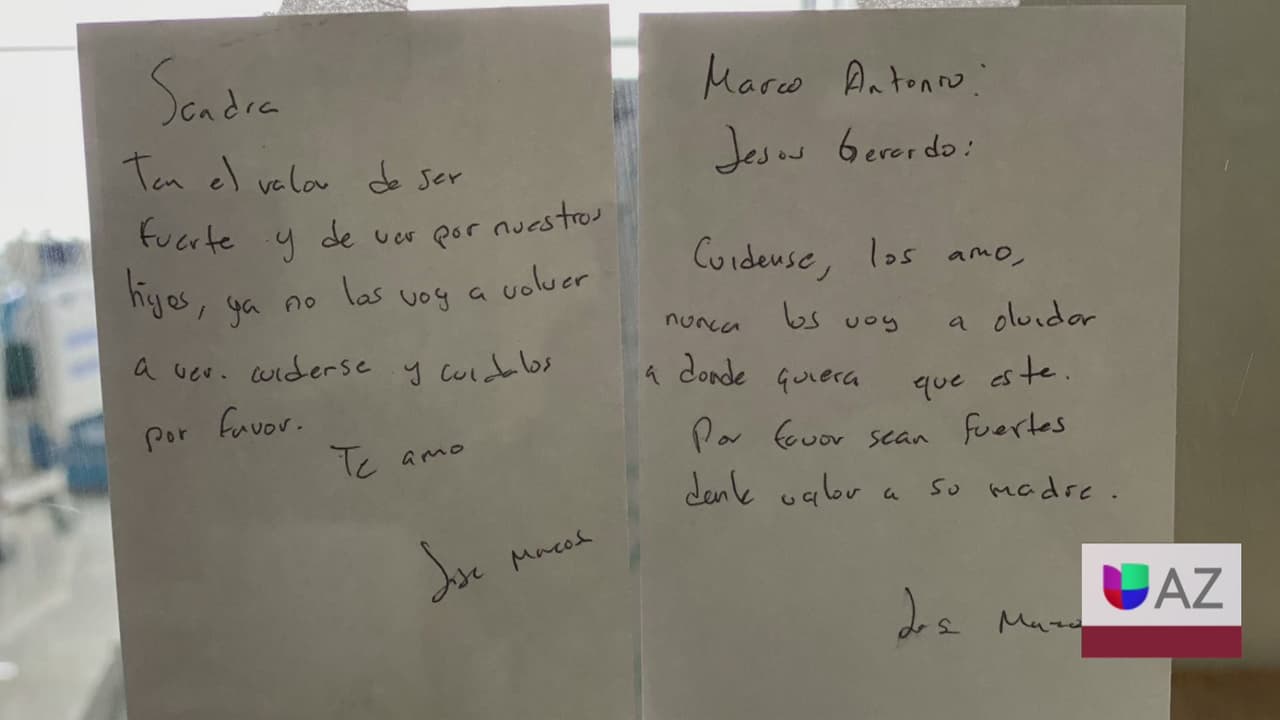 Sandra
Ten el valor de ser
fuerte y de ver por nuestros
hijos, ya no los voy a volver
a ver. cuiderse y cuidalos
por favor.
Te amo
Jose Marcos
Marco Antonio:
Jesus Gerardo:
Cuidense, los amo,
nunca los voy a olvidar
a donde quiera que este.
Por favor sean fuertes
denle valor a so madre.
Jose
AZ